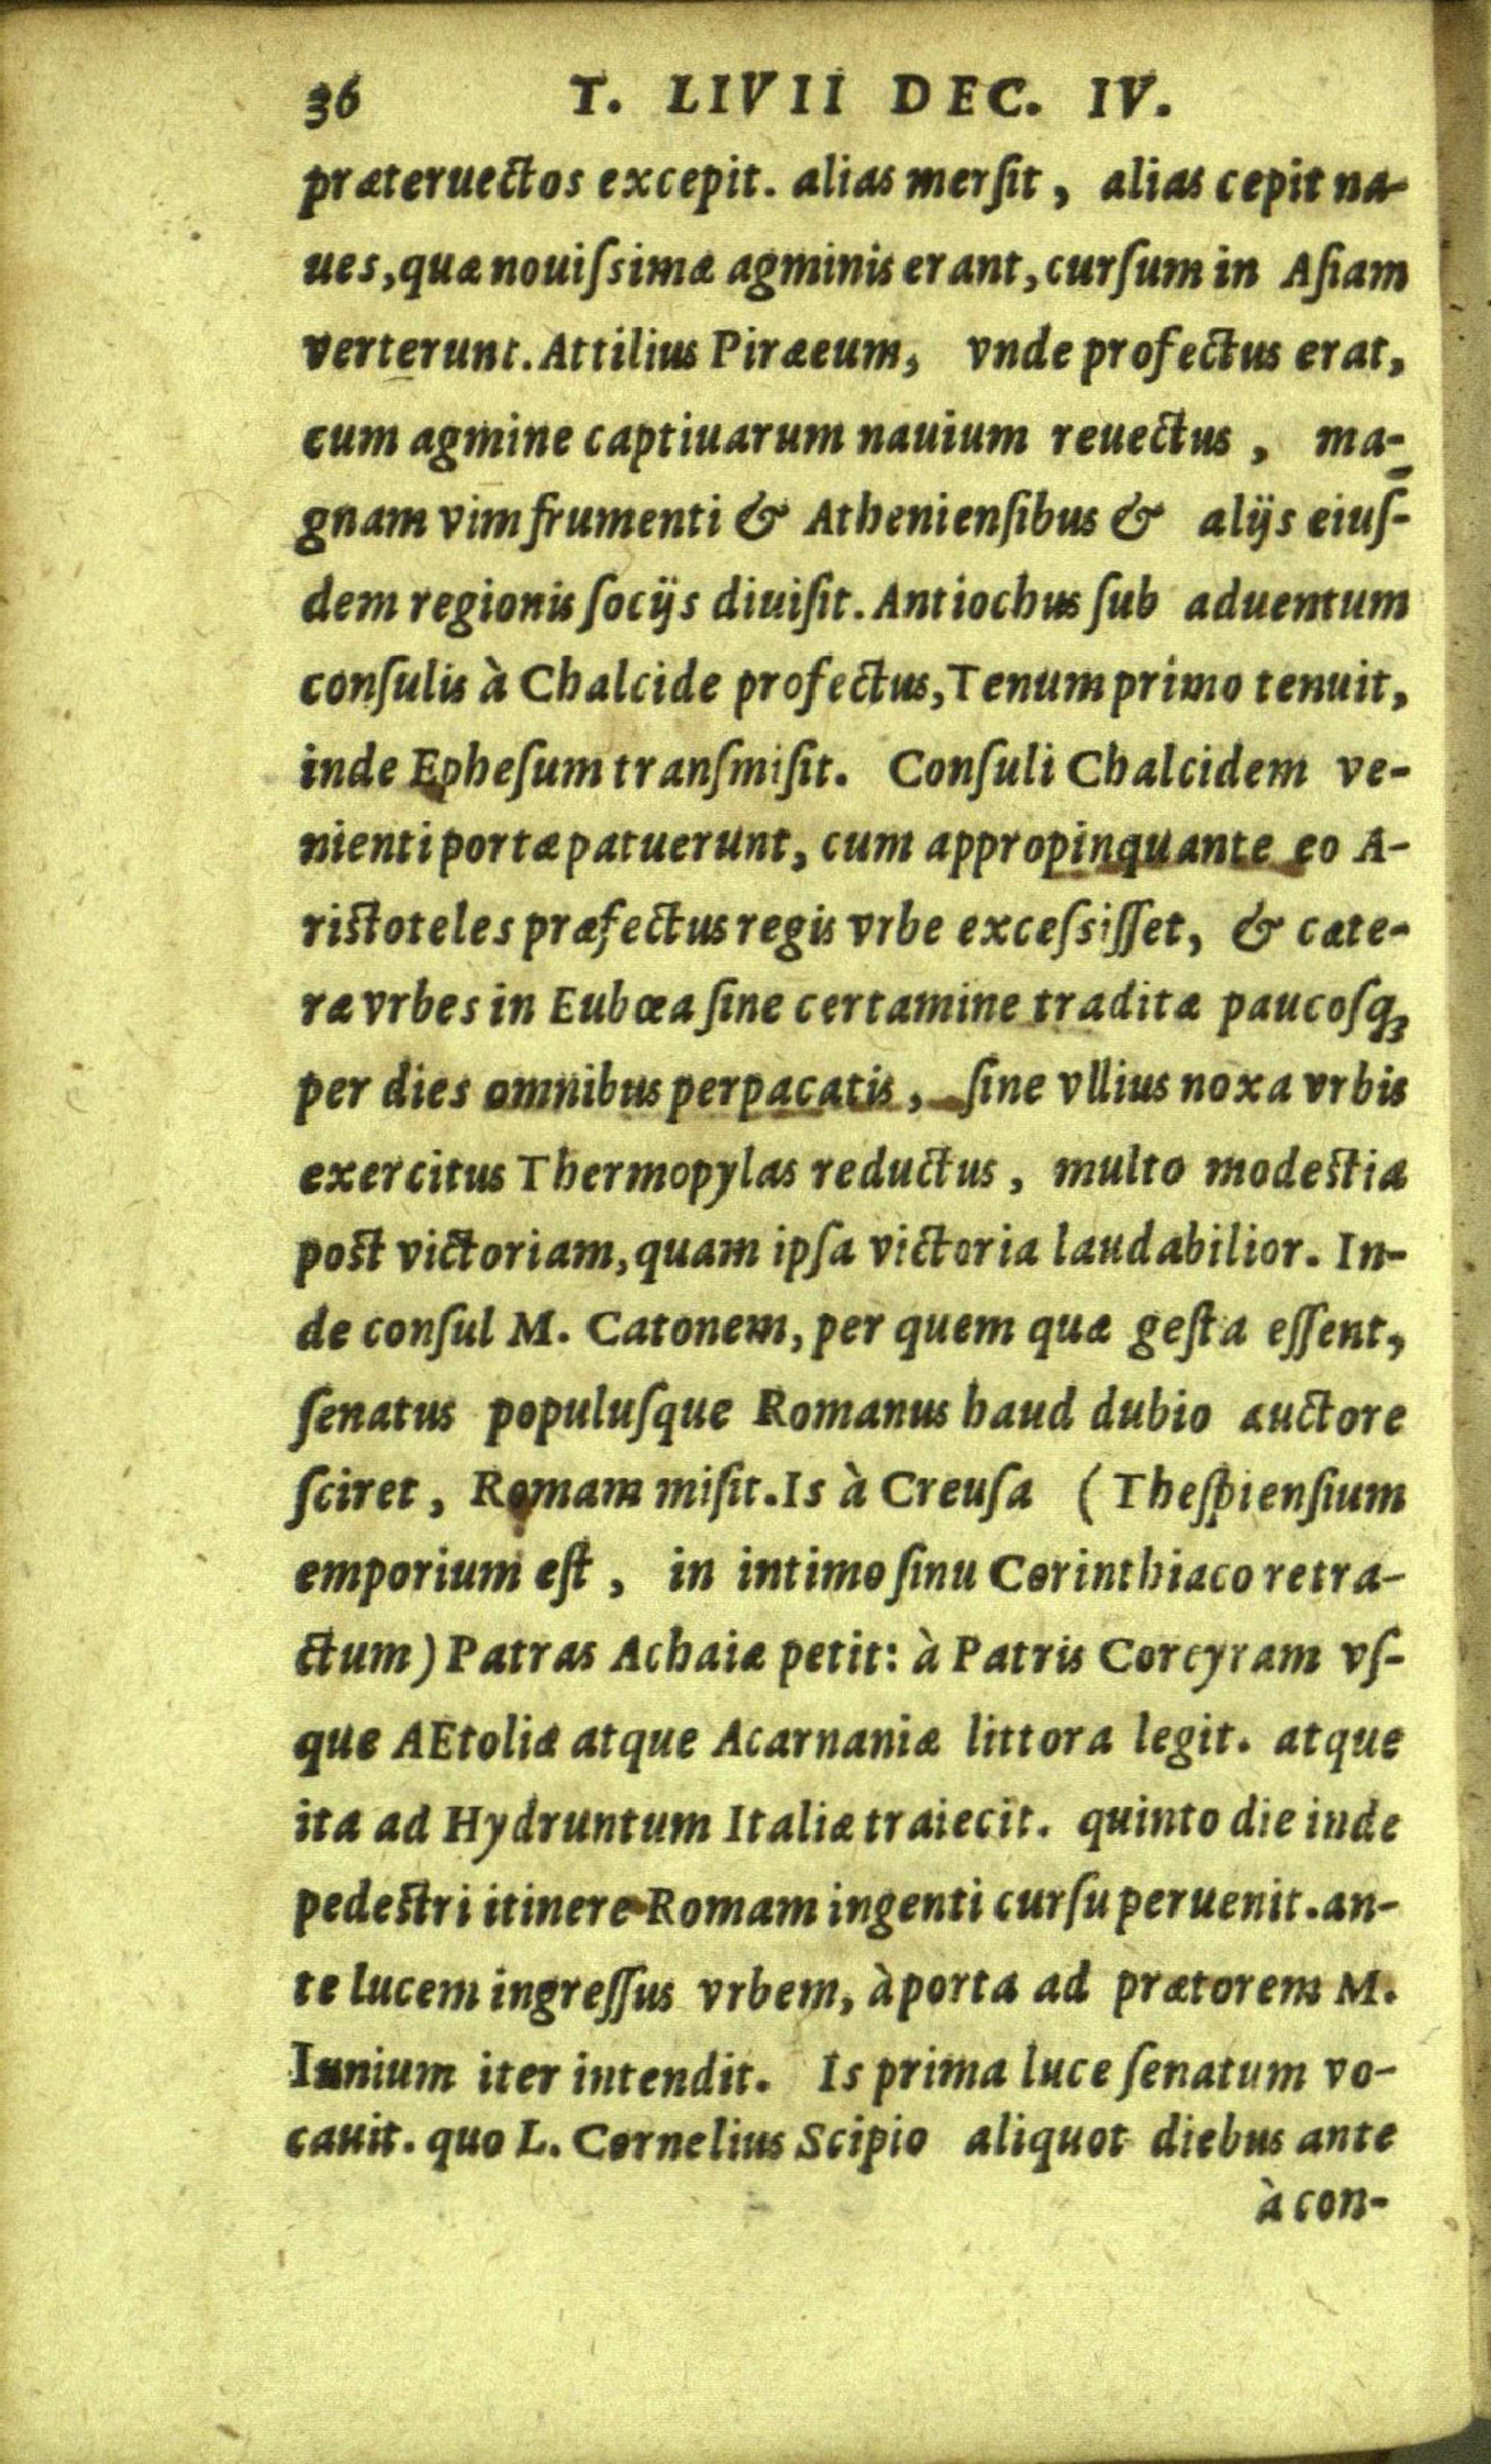 36 T. LIVII DEC. IV.
præteruectos excepit. alias merſit, alias cepit na-
ues, quæ nouiſsimæ agminis erant, curſum in Aſiam
verterunt. Attilius Piræeum, vnde profectus erat,
cum agmine captiuarum nauium reuectus, ma-
gnam vim frumenti & Athenienſibus & alijs eiuſ-
dem regionis ſocijs diuiſit. Antiochus ſub aduentum
conſulis à Chalcide profectus, Tenum primo tenuit,
inde Epheſum tranſmiſit. Conſuli Chalcidem ve-
nienti portæ patuerunt, cum appropinquante eo A-
riſtoteles præfectus regis vrbe exceſsiſſet, & cæte-
ræ vrbes in Eubœa ſine certamine traditæ paucoſq;
per dies omnibus perpacatis, ſine vllius noxa vrbis
exercitus Thermopylas reductus, multo modeſtia
poſt victoriam, quam ipſa victoria laudabilior. In-
de conſul M. Catonem, per quem quæ geſta eſſent,
ſenatus populuſque Romanus haud dubio auctore
ſciret, Romam miſit. Is à Creuſa (Theſpienſium
emporium eſt, in intimo ſinu Corinthiaco retra-
ctum) Patras Achaiæ petit: à Patris Corcyram vſ-
que AEtoliæ atque Acarnaniæ littora legit. atque
ita ad Hydruntum Italiæ traiecit. quinto die inde
pedeſtri itinere Romam ingenti curſu peruenit. an-
te lucem ingreſſus vrbem, à porta ad prætorem M.
Iunium iter intendit. Is prima luce ſenatum vo-
cauit. quo L. Cornelius Scipio aliquot diebus ante
à con-